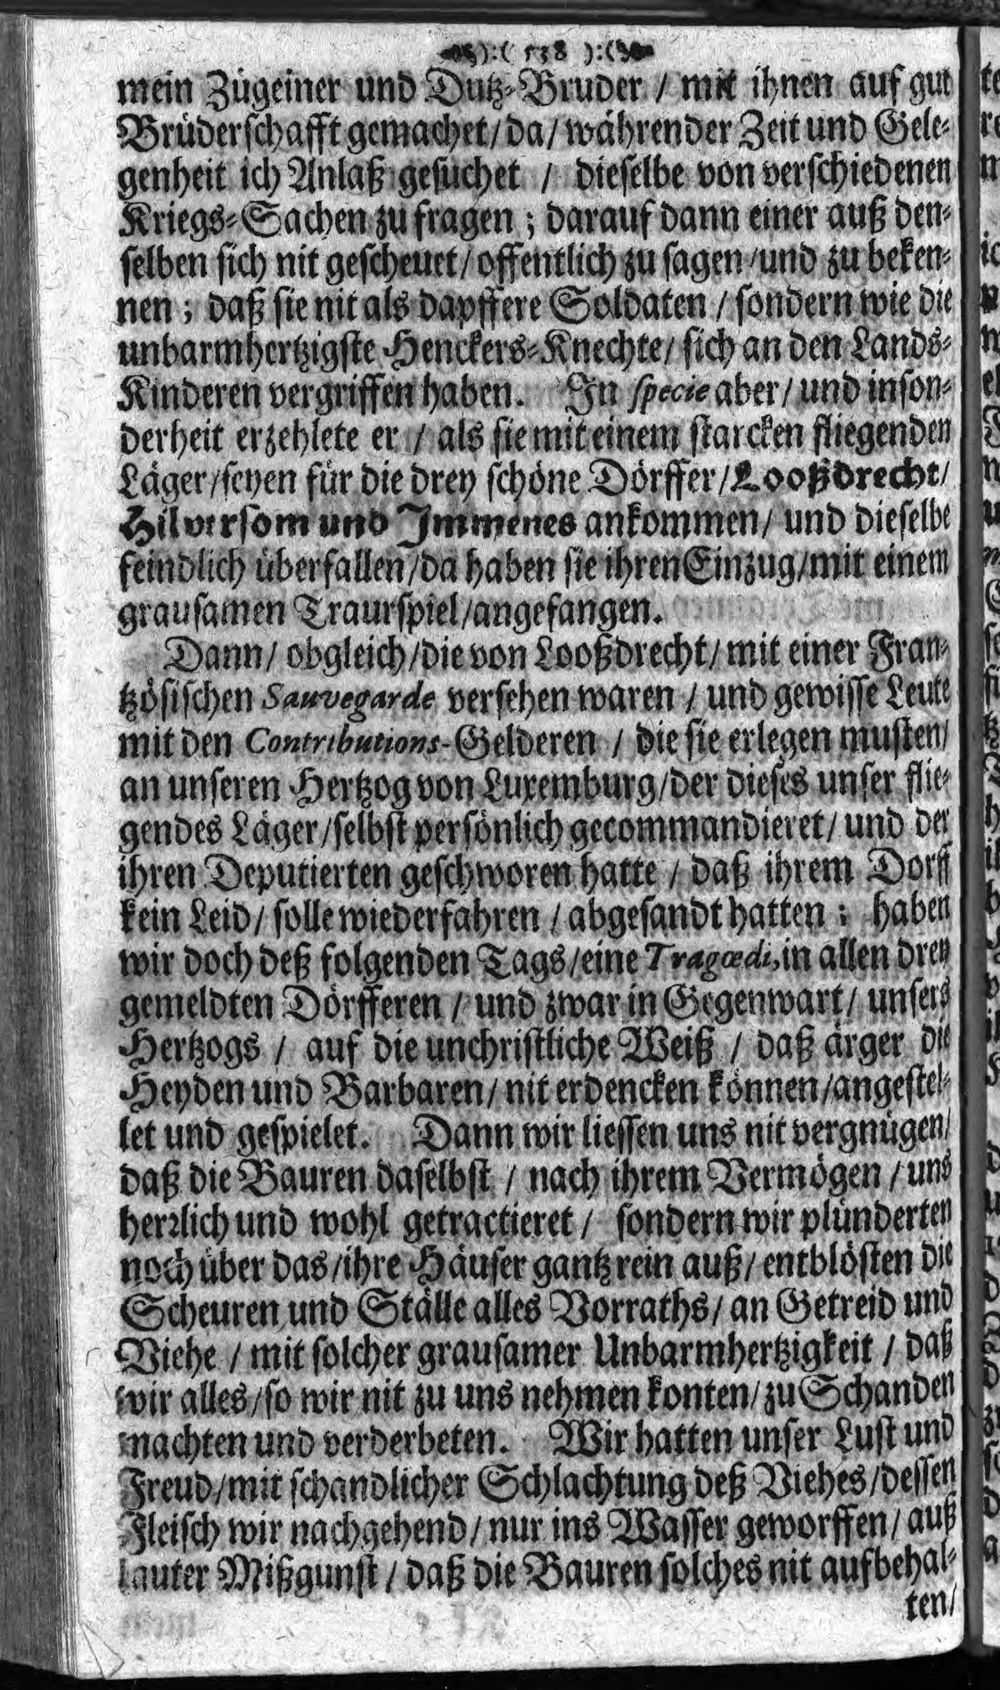 ):( 538 ):(
mein Zügeiner und Dutz-Bruder / mit ihnen auf gut
Brüderschafft gemachet/ da/ währender Zeit und Gele-
genheit ich Anlaß gesuchet / dieselbe von verschiedenen
Kriegs-Sachen zu fragen ; darauf dann einer auß den-
selben sich nit gescheuet/ offentlich zu sagen /und zu beken-
nen ; daß sie nit als dapffere Soldaten / sondern wie die
unbarmhertzigste Henckers-Knechte/ sich an den Lands-
Kinderen vergriffen haben. In specie aber/ und inson-
derheit erzehlete er / als sie mit einem starcken fliegenden
Läger/seyen für die drey schöne Dörffer/Looßdrecht/
Hilversom und Immenes ankommen/ und dieselbe
feindlich überfallen/da haben sie ihren Einzug/mit einem
grausamen Traurspiel/angefangen.
Dann/ obgleich/die von Looßdrecht/ mit einer Fran-
tzösischen Sauvegarde versehen waren / und gewisse Leute
mit den Contributions-Gelderen / die sie erlegen musten/
an unseren Hertzog von Luxemburg/der dieses unser flie-
gendes Läger/selbst persönlich gecommandieret/ und der
ihren Deputierten geschworen hatte / daß ihrem Dorff
kein Leid/ solle wiederfahren / abgesandt hatten ; haben
wir doch deß folgenden Tags/eine Tragœdi, in allen drey
gemeldten Dörfferen / und zwar in Gegenwart/ unsers
Hertzogs / auf die unchristliche Weiß / daß ärger die
Heyden und Barbaren/ nit erdencken können/angestel-
let und gespielet. Dann wir liessen uns nit vergnügen/
daß die Bauren daselbst / nach ihrem Vermögen / uns
herrlich und wohl getractieret / sondern wir plünderten
noch über das/ihre Häuser gantz rein auß/ entblösten die
Scheuren und Ställe alles Vorraths/ an Getreid und
Viehe / mit solcher grausamer Unbarmhertzigkeit / daß
wir alles/so wir nit zu uns nehmen konten/ zu Schanden
machten und verderbeten. Wir hatten unser Lust und
Freud/mit schandlicher Schlachtung deß Viehes/dessen
Fleisch wir nachgehend/ nur ins Wasser geworffen/ auß
lauter Mißgunst / daß die Bauren solches nit aufbehal-
ten/